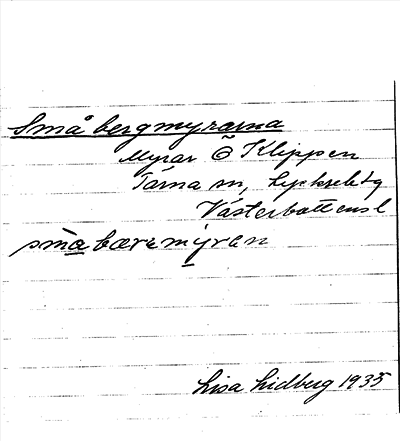 Små bergmyrarna
Myrar ⊙ Klippen
Tärna sn, Lycksele tg
Västerbottensl
småbæremýren
Lisa Lidberg 1935